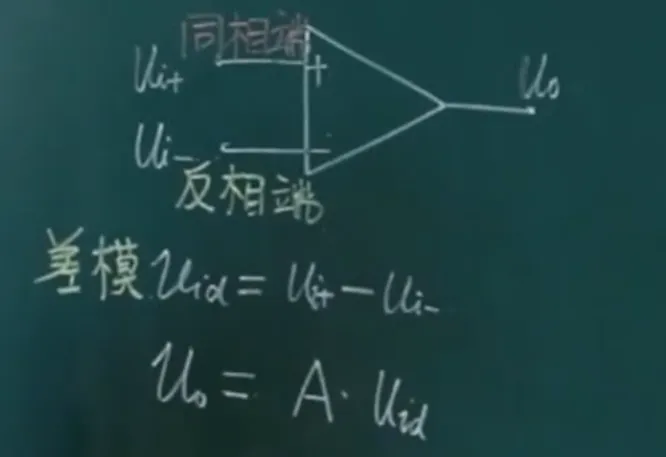 同相端
Ui+
+
Uo
Ui-
-
反相端
差模 Uid = Ui+ - Ui-
Uo = A · Uid